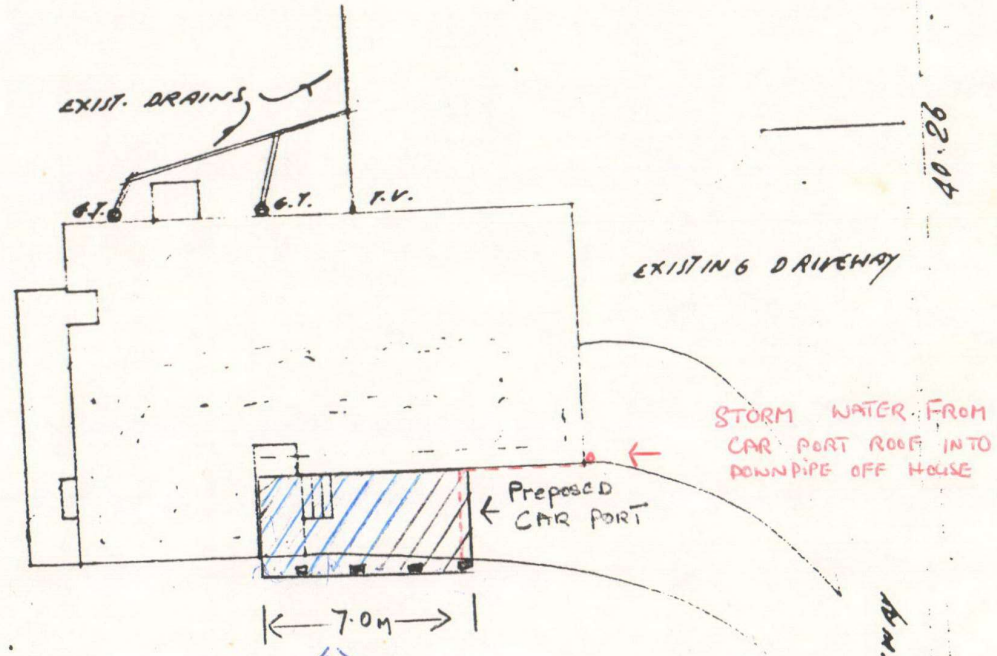 EXIST. DRAINS
G.T.
G.T.
T.V.
40.26
EXISTING DRIVEWAY
STORM WATER FROM
CAR PORT ROOF INTO
DOWNPIPE OFF HOUSE
Preposed
CAR PORT
7.0M